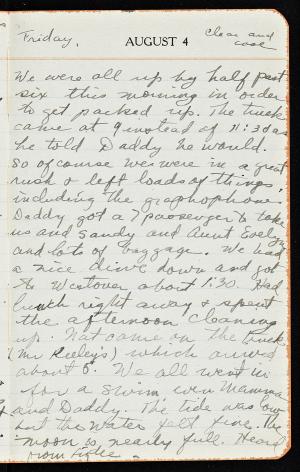 Friday. AUGUST 4 Clear and
cool
We were all up by half past
six this morning in order
to get packed up. The truck
came at 9 instead of 11:30 as
he told Daddy he would.
So of course we were in a great
rush & left loads of things,
including the graphophone.
Daddy got a 7 passenger to take
us and Sandy and Aunt Evelyn
and lots of baggage. We had
a nice drive down and got
to Westover about 1:30. Had
lunch right away & spent
the afternoon cleaning
up. Nat came on the truck
(Mr Keeley's) which arrived
about 6. We all went in
for a swim even Mamma
and Daddy. The tide was low
but the water felt fine. The
moon is nearly full. Heard
from